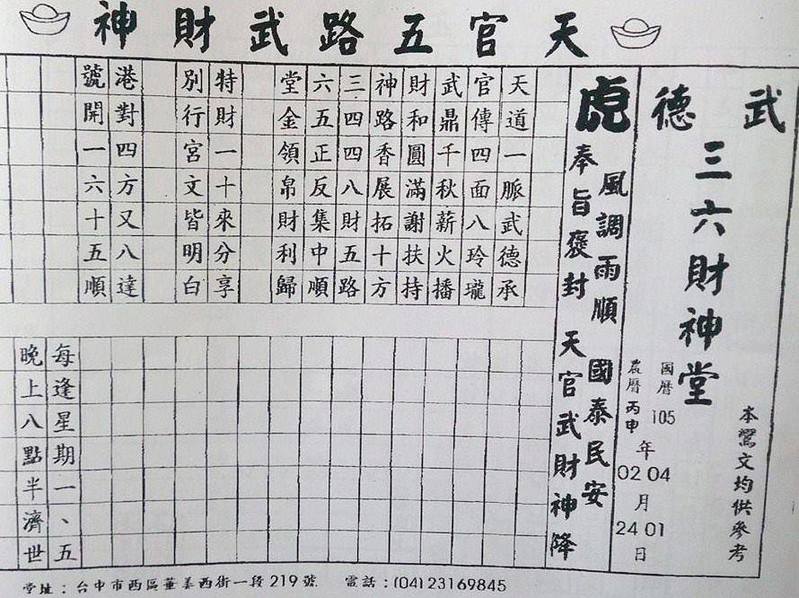 天官五路武財神
武德
三六財神堂
本鸞文均供參考
國曆 105 年 04 月 01 日
農曆 丙申 年 02 月 24 日
虎
風調雨順 國泰民安
奉旨褒封 天官武財神降
天道一脈武德承
官傳四面八玲瓏
武鼎千秋薪火播
財和圓滿謝扶持
神路香展拓十方
三四四八財五路
六五正反集中順
堂金領帛財利歸
特財一十來分享
別行宮文皆明白
港對四方又八達
號開一六十五順
每逢星期一、五
晚上八點半濟世
堂址：台中市西區華美西街一段219號 電話：(04)23169845